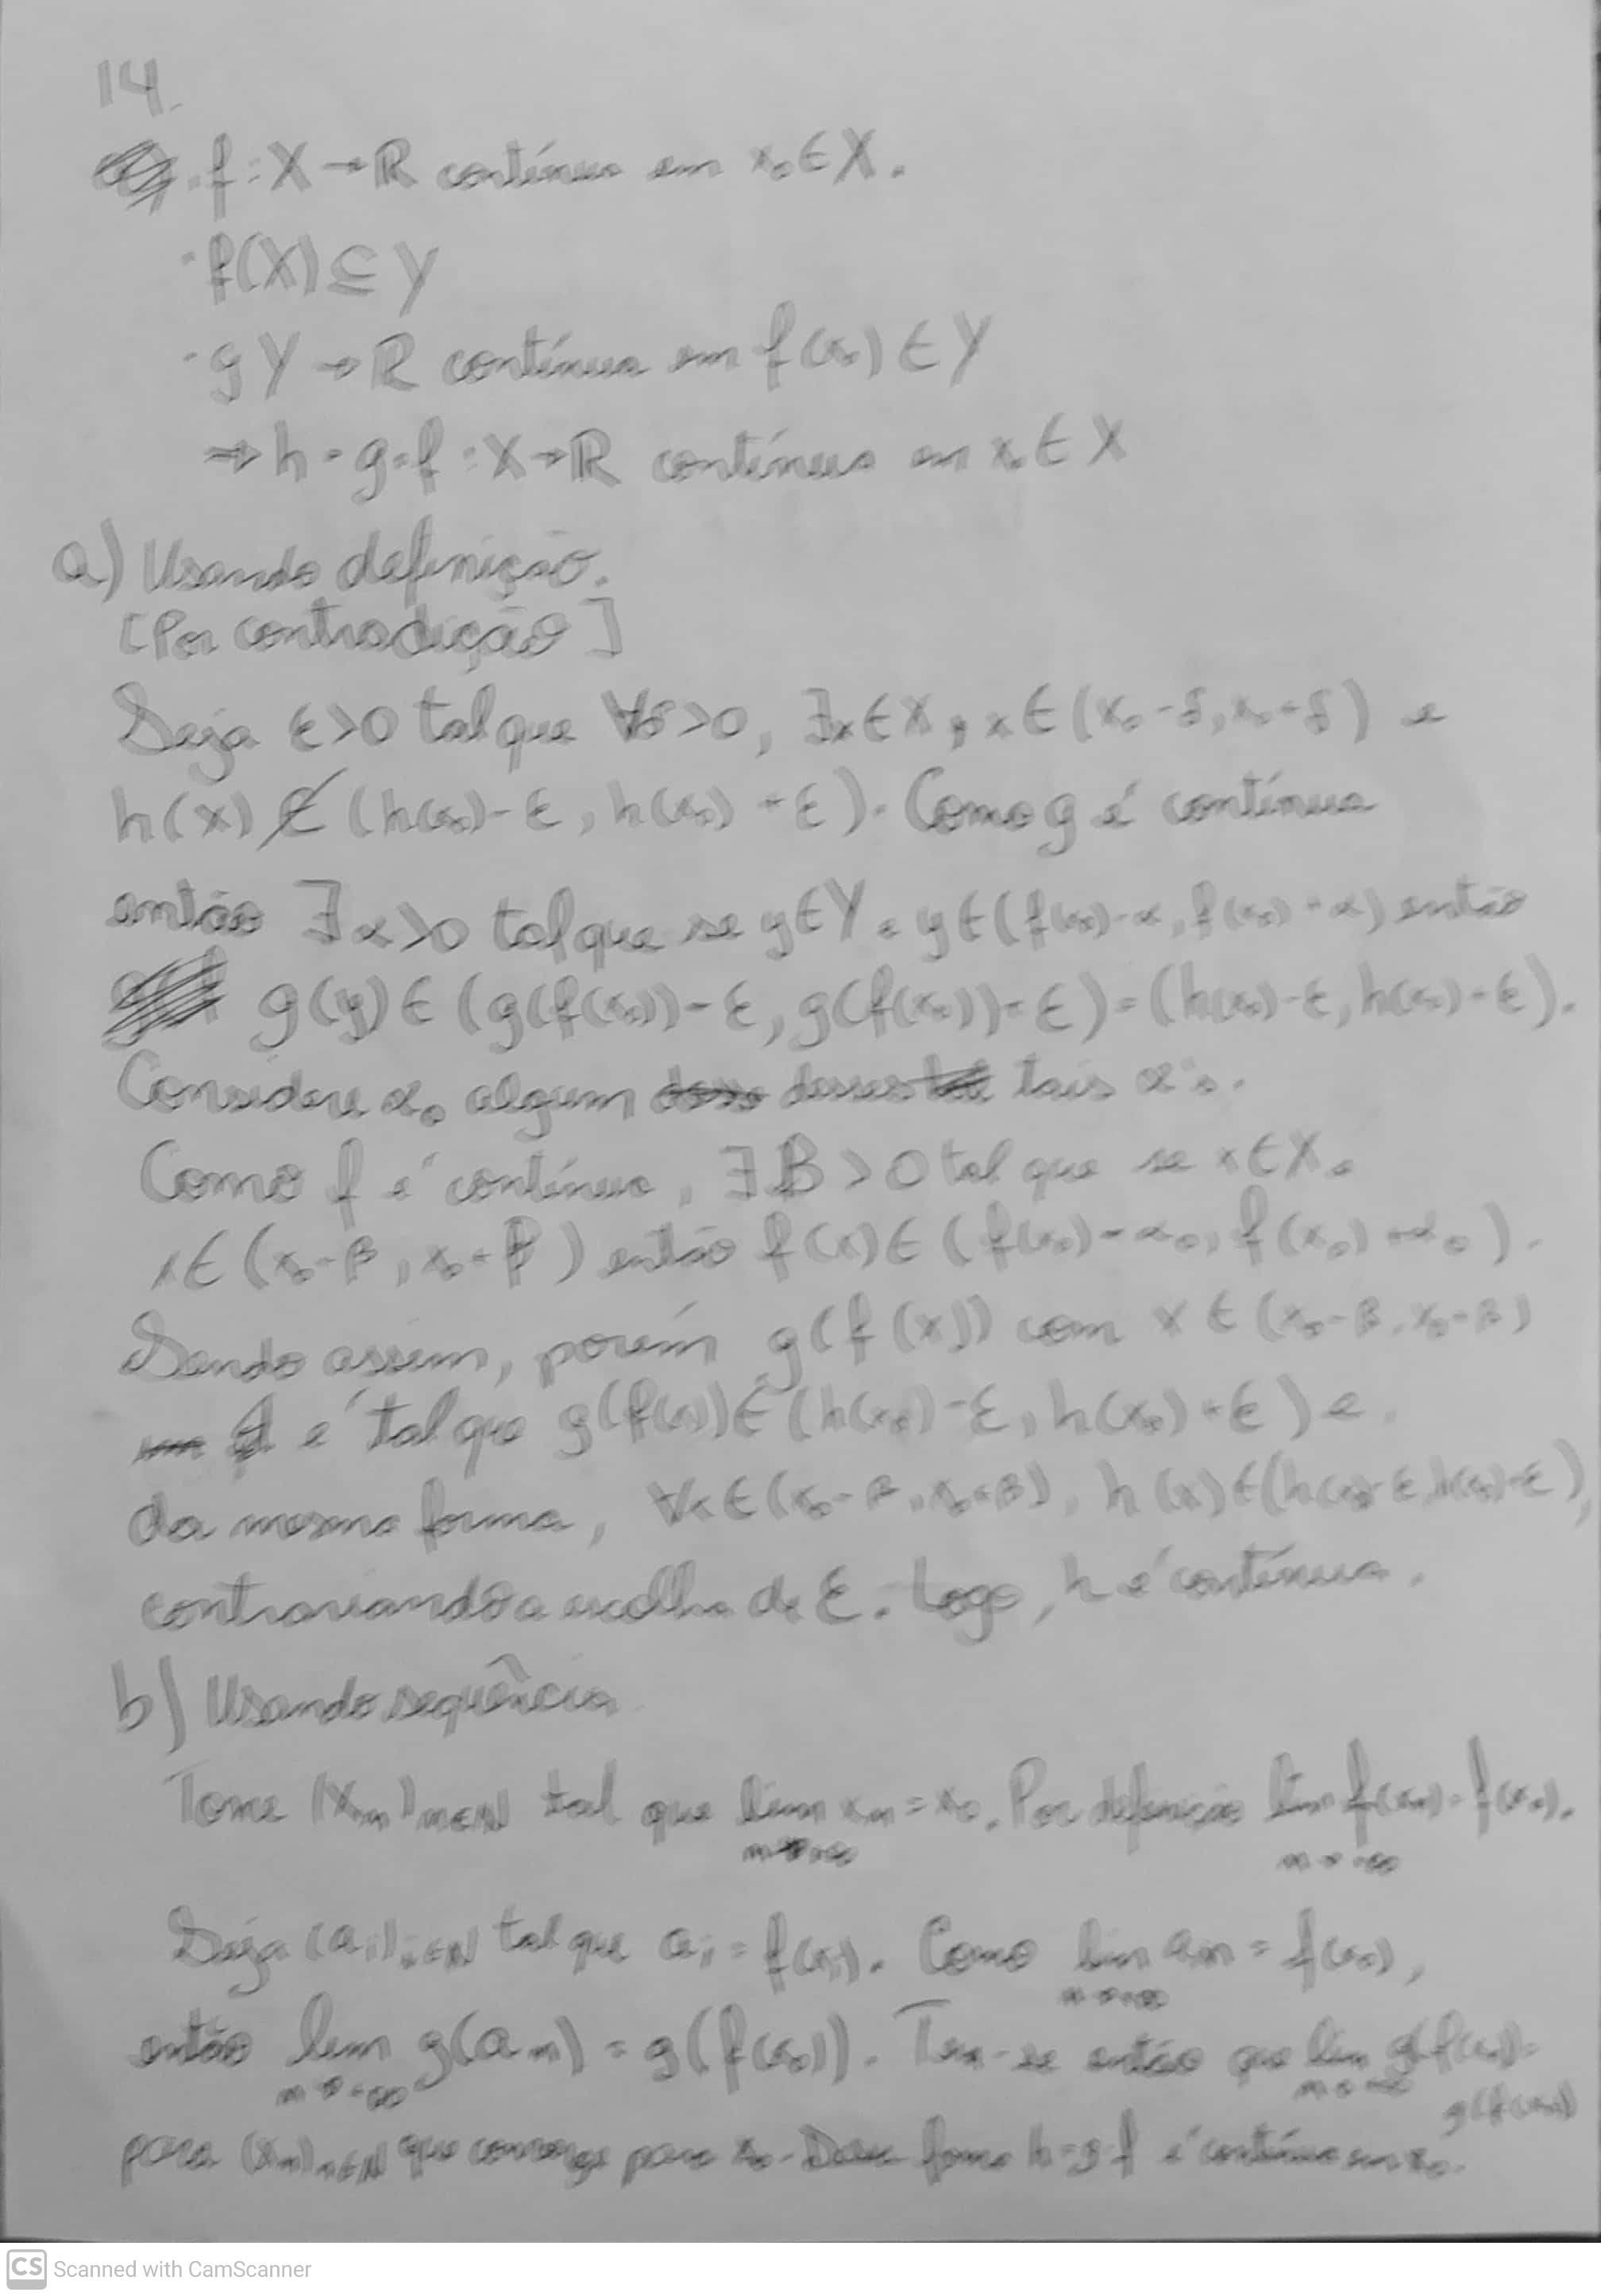 14.
· f: X → ℝ contínua em x₀ ∈ X.
· f(X) ⊆ Y
· g Y → ℝ contínua em f(x₀) ∈ Y
⇒ h = g∘f : X → ℝ contínua em x₀ ∈ X
a) Usando definição.
[Por contradição]
Seja ε > 0 tal que ∀δ > 0, ∃x ∈ X, x ∈ (x₀ - δ, x₀ + δ) e
h(x) ∉ (h(x₀) - ε, h(x₀) + ε). Como g é contínua
então ∃α > 0 tal que se y ∈ Y e y ∈ (f(x₀) - α, f(x₀) + α) então
g(y) ∈ (g(f(x₀)) - ε, g(f(x₀)) + ε) = (h(x₀) - ε, h(x₀) + ε).
Considere α₀ algum desses tais α's.
Como f é contínua, ∃β > 0 tal que se x ∈ X e
x ∈ (x₀ - β, x₀ + β) então f(x) ∈ (f(x₀) - α₀, f(x₀) + α₀).
Sendo assim, porém g(f(x)) com x ∈ (x₀ - β, x₀ + β)
é tal que g(f(x)) ∈ (h(x₀) - ε, h(x₀) + ε) e
da mesma forma, ∀x ∈ (x₀ - β, x₀ + β), h(x) ∈ (h(x₀) - ε, h(x₀) + ε),
contrariando a escolha de ε. Logo, h é contínua.
b) Usando sequência
Tome (xₙ)ₙ∈ℕ tal que lim xₙ = x₀. Por definição lim f(xₙ) = f(x₀).
n→+∞ n→+∞
Seja (aᵢ)ᵢ∈ℕ tal que aᵢ = f(xᵢ). Como lim aₙ = f(x₀),
n→+∞
então lim g(aₙ) = g(f(x₀)). Tem-se então que lim g(f(xₙ)) =
n→+∞ n→+∞ g(f(x₀))
para (xₙ)ₙ∈ℕ que converge para x₀. Dessa forma h = g∘f é contínua em x₀.
CS Scanned with CamScanner